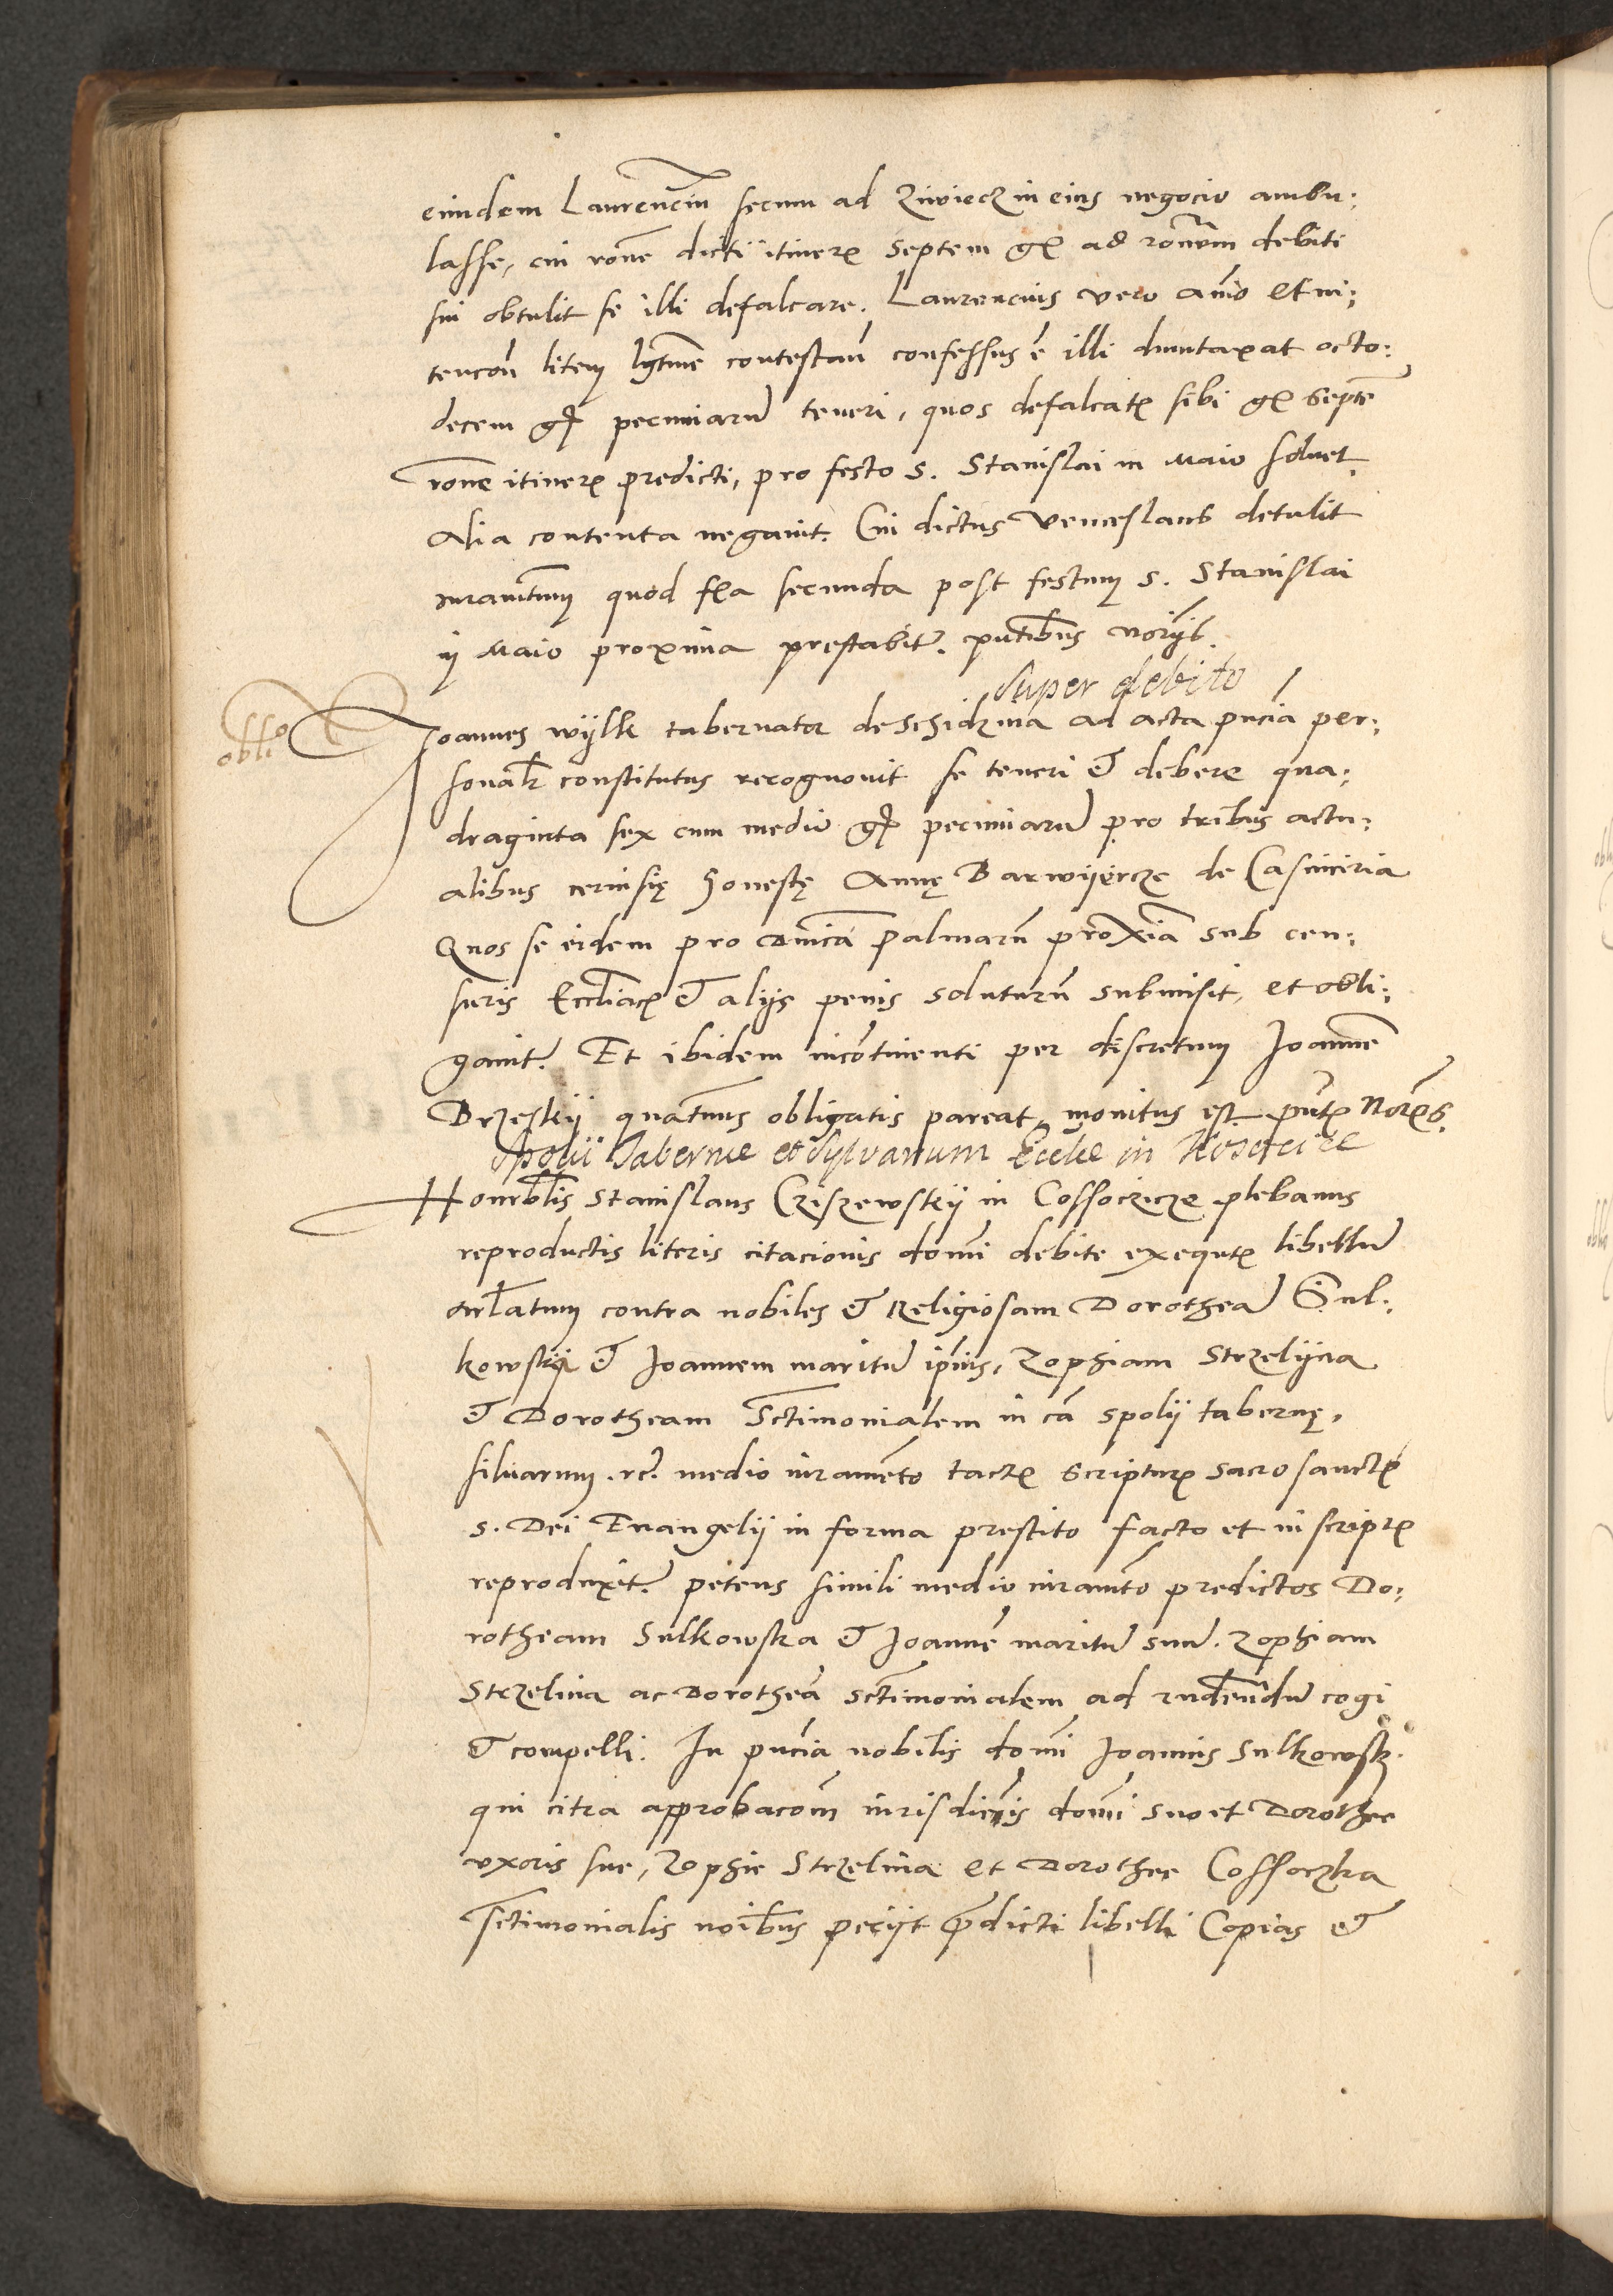 eundem Laurenciu secum ad Ziwiecz in eius negocio ambu:
lasse, cui rone dicti itiner septem gr ad ronem debiti
sui obtulit se illi defalcare. Laurencius vero animo et in:
tencon litem lgtime contestan confessus e illi duntaxat octo:
decem gr pecuniaru teneri, quos defalcat sibi gr septe
rone itiner predicti, pro festo S. Stanislai in Maio soluet
Alia contenta negauit. Cui dictus Venceslaus detulit
iuramtum quod fia secunda post festum S. Stanislai
in Maio proxima prestabit. pntibus norijs.
super debito
oblio
Joannes wylk tabernator de Schidzina ad acta pncia per:
sonalr constitutus recognouit se teneri & debere qua:
draginta sex cum medio gr pecuniaru pro tribus actu:
alibus ceruisię honestę Annę Barwyercze de Casimiria
Quos se eidem pro dnica palmaru proxia sub cen:
suris Eccliac & alijs penis soluturu submisit, et obli:
gauit. Et ibidem incotinenti per discretum Joanne
Brzeskij quatenus obligatis pareat monitus est pnt Nor
Spolii Taberne et Sylvarum Eccle in Kosocice
Honorblis Stanislaus Cziszewskij in Cossoczicze plebanus
reproductis literis citacionis domi debite exequt libellu
arlatum contra nobiles & Religiosam Dorothea Sul:
kowska & Joannem maritu ipius, Zophiam Strzelijna
& Dorotheam Sctimonialem in ca spolij tabernę,
siluarum .rc. medio iurameto tact scriptur sacrosanct
S. Dei Euangelij in forma prestito facto et in script
reproduxit. petens simili medio iuramto predictos Do:
rotheam Sulkowska & Joanne maritu suu. Zophiam
Strzelina ac Dorothea Sctimonialem ad rndendu cogi
& compelli. In pncia nobilis domi Joannis Sulkowsk.
qui citra approbacom iurisdicnis domi suo et Dorothee
vxoris sue, Zophie Strzelina et Dorothee Cossoczka
Sctimonialis noibus petijt predicti libelli Copias &